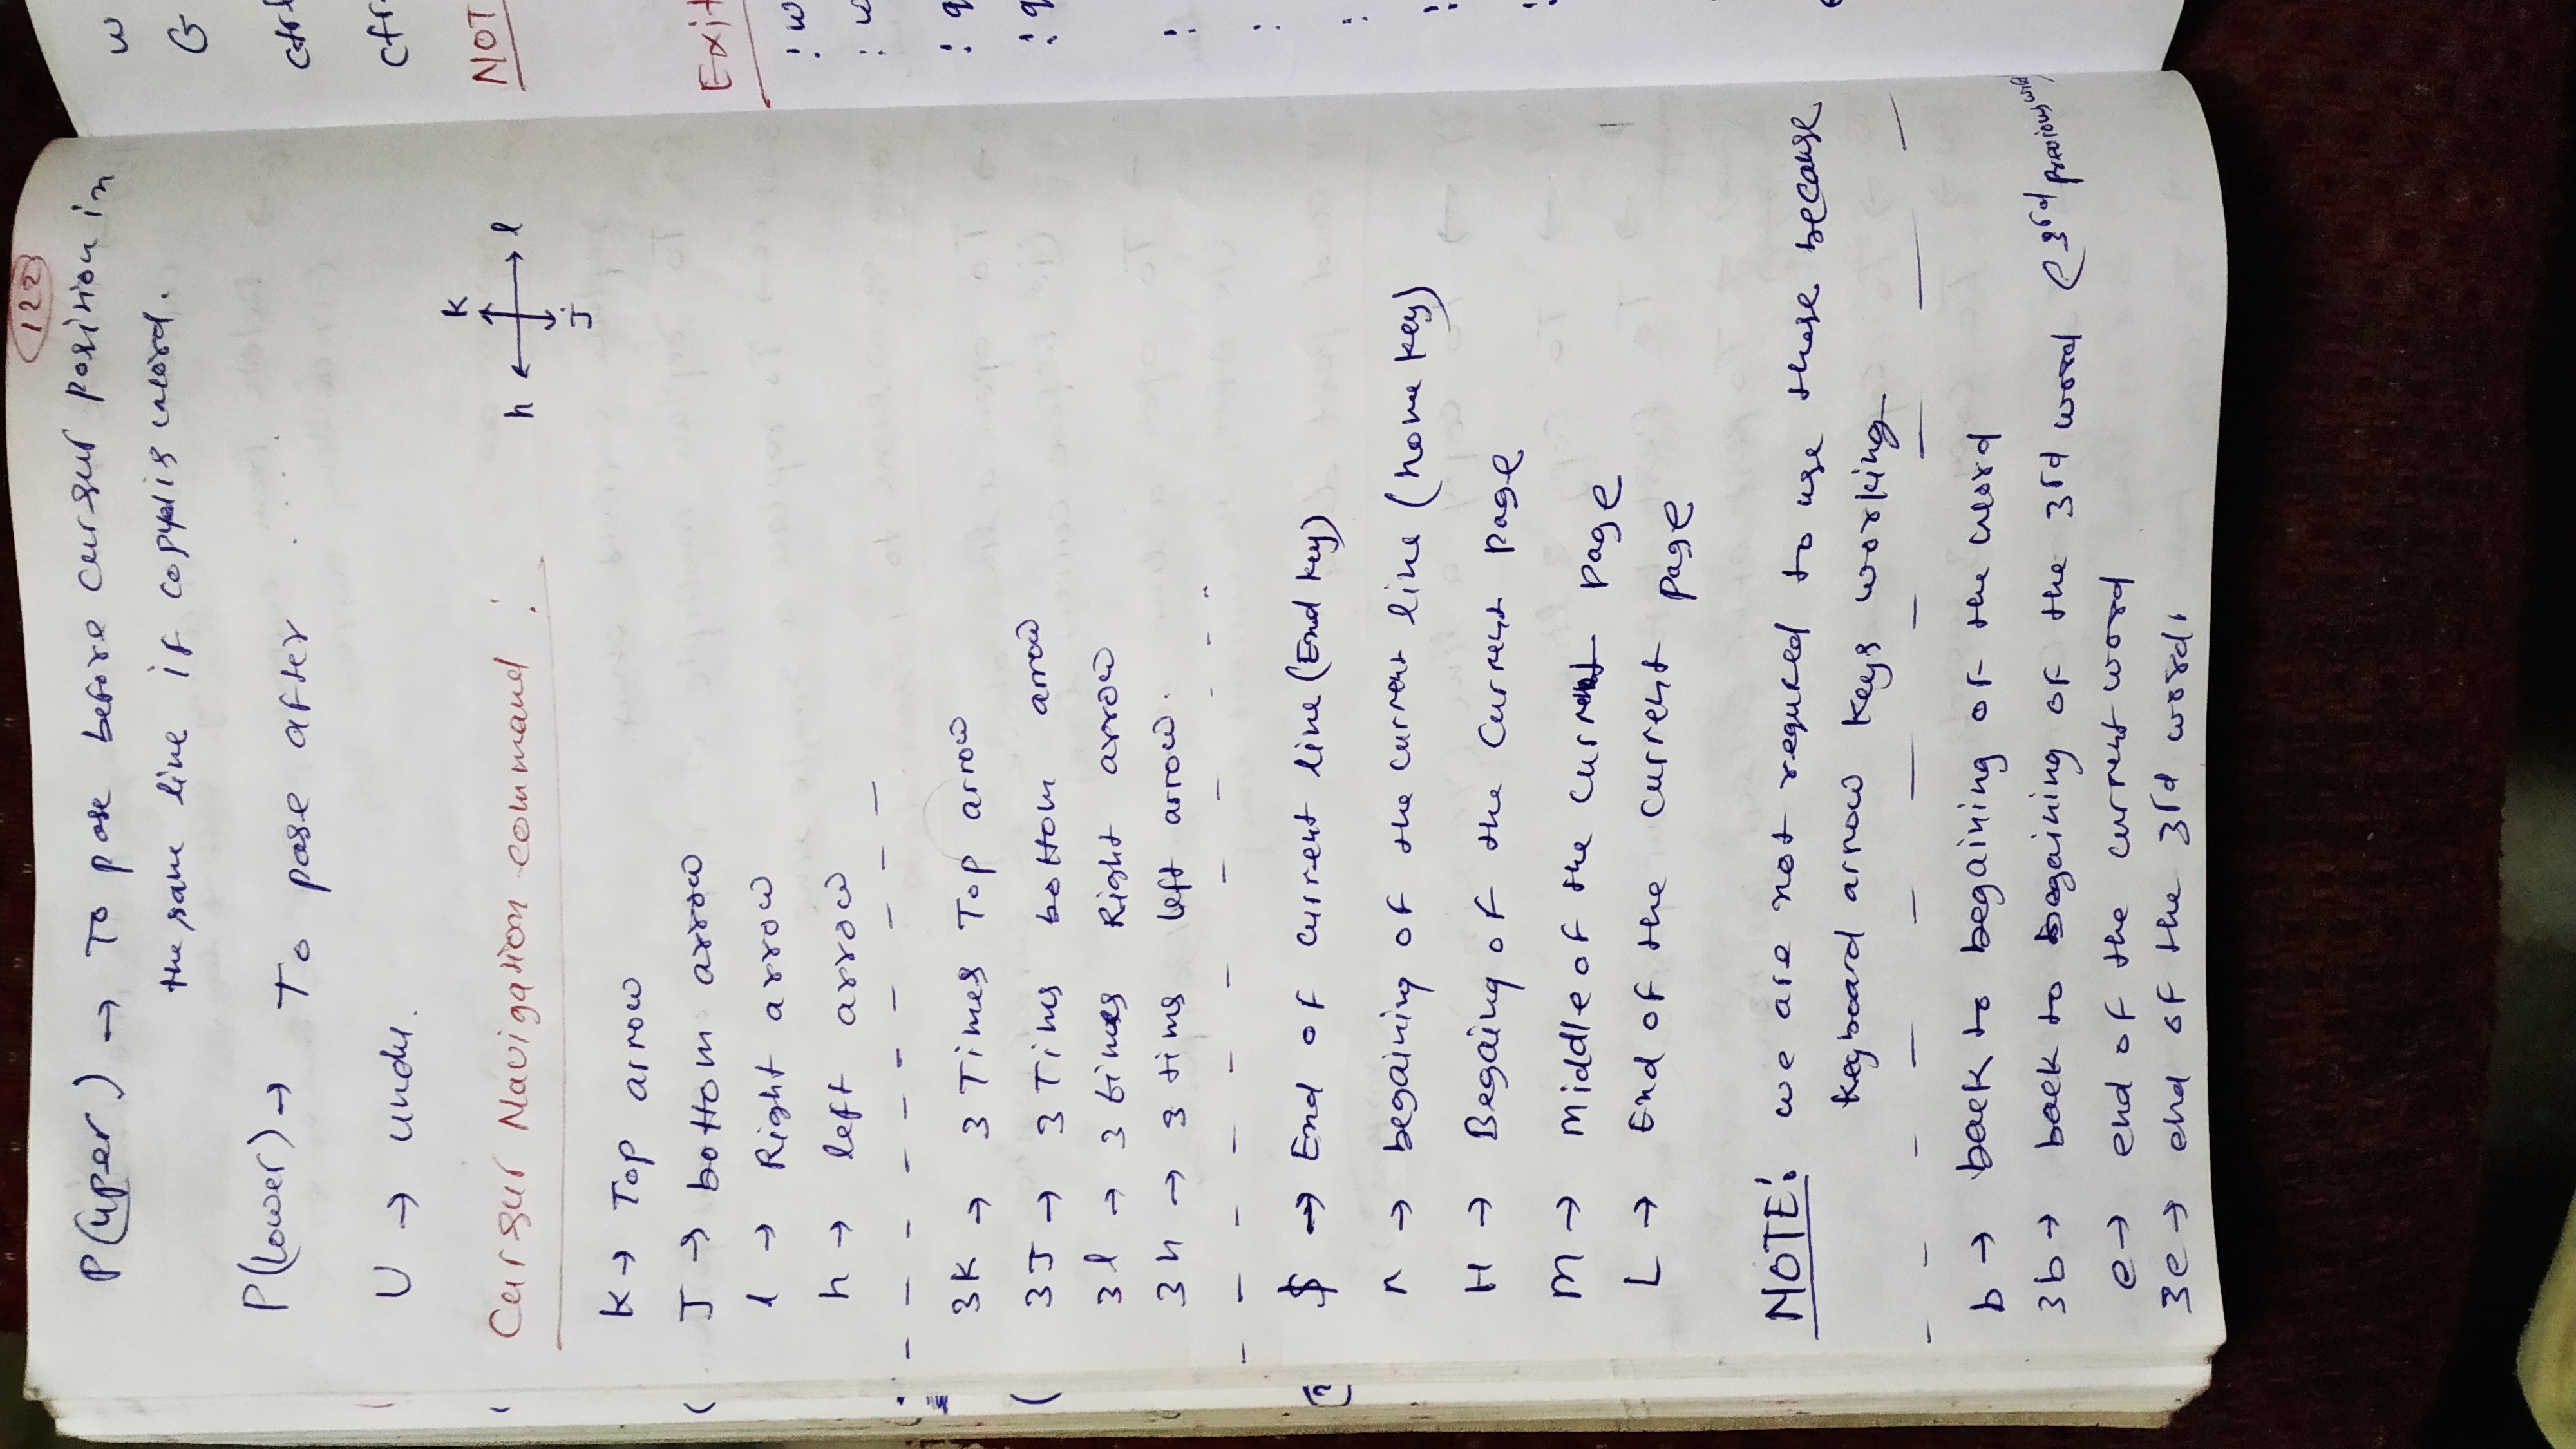 122
P(uper) → To pase before cursur position in
the same line if copyd is word.
P(lower) → To pase after ....
U → undu.
Cursur Navigation command :
K
h l
J
K → Top arrow
J → bottom arrow
l → Right arrow
h → left arrow
3K → 3 Times Top arrow
3J → 3 Tims bottom arrow
3l → 3 times Right arrow
3h → 3 tims left arrow.
$ → End of current line (End key)
^ → begaining of the current line (home key)
H → Begaing of the Current page
M → Middle of the current page
L → End of the current page
NOTE: we are not requred to use these because
keyboard arrow keys working
b → back to begaining of the word
3b → back to begaining of the 3rd word (3rd previous word)
e → end of the current word
3e → end of the 3rd word.
w
G
ctrl
ctr
NOT
Exit
:w
:w
:q
:q